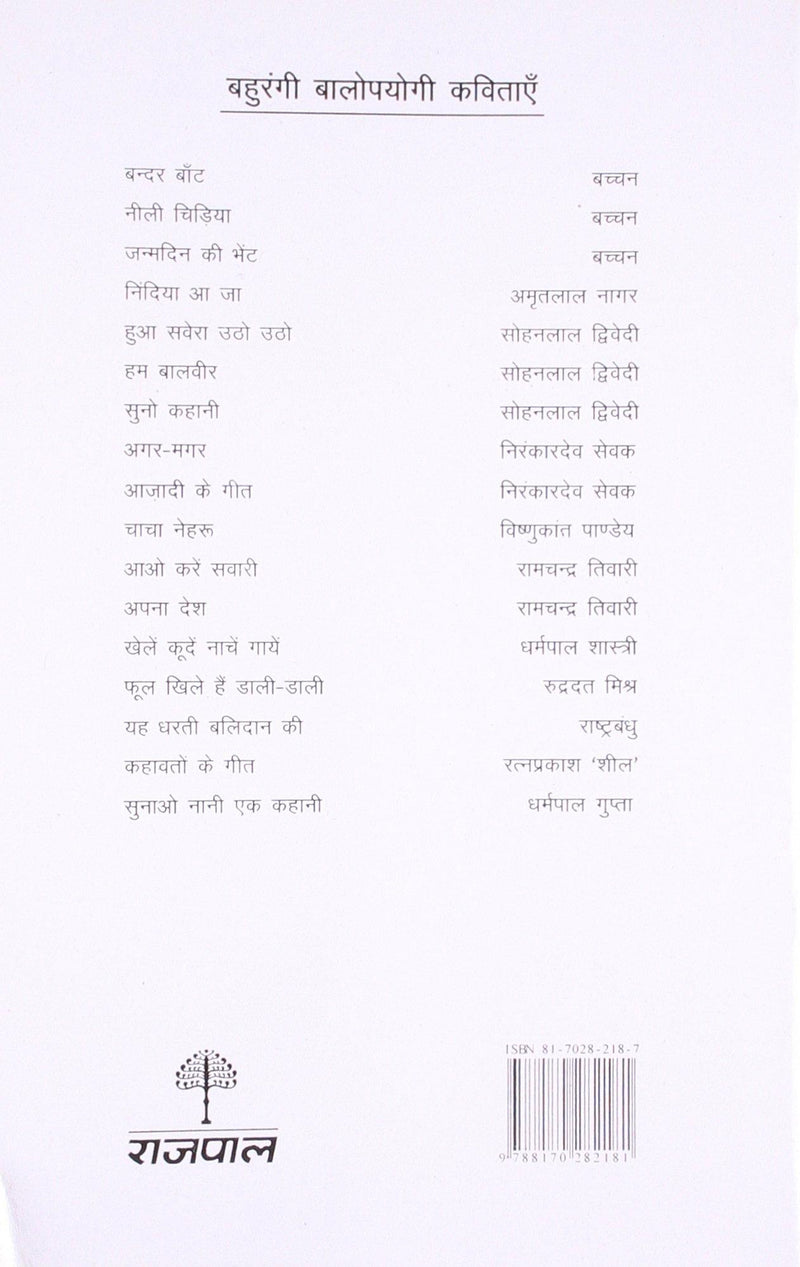 बहुरंगी बालोपयोगी कविताएँ
बन्दर बाँट बच्चन
नीली चिड़िया बच्चन
जन्मदिन की भेंट बच्चन
निंदिया आ जा अमृतलाल नागर
हुआ सवेरा उठो उठो सोहनलाल द्विवेदी
हम बालवीर सोहनलाल द्विवेदी
सुनो कहानी सोहनलाल द्विवेदी
अगर-मगर निरंकारदेव सेवक
आज़ादी के गीत निरंकारदेव सेवक
चाचा नेहरू विष्णुकांत पाण्डेय
आओ करें सवारी रामचन्द्र तिवारी
अपना देश रामचन्द्र तिवारी
खेलें कूदें नाचें गायें धर्मपाल शास्त्री
फूल खिले हैं डाली-डाली रुद्रदत मिश्र
यह धरती बलिदान की राष्ट्रबंधु
कहावतों के गीत रत्नप्रकाश ‘शील’
सुनाओ नानी एक कहानी धर्मपाल गुप्ता
राजपाल
ISBN 81-7028-218-7
9 788170 282181